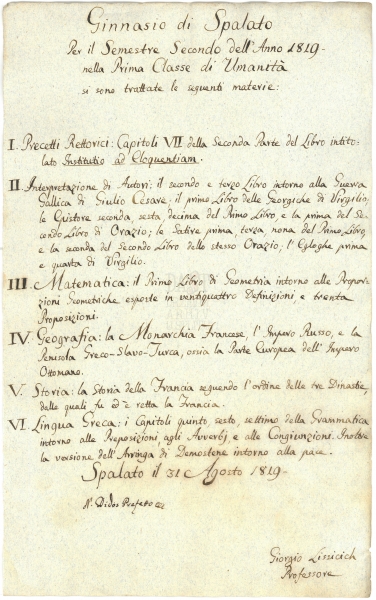 Ginnasio di Spalato
Per il Semestre Secondo dell'Anno 1819-
nella Prima Classe di Umanità
si sono trattate le seguenti materie:
I. Precetti Rettorici: Capitoli VII della Seconda Parte del Libro intito-
lato Institutio ad Eloquentiam.
II. Interpretazione di Autori: il secondo e terzo Libro intorno alla Guerra
Gallica di Giulio Cesare; il primo Libro delle Georgiche di Virgilio;
le Epistole seconda, sesta, decima del Primo Libro, e la prima del Se-
condo Libro di Orazio; le Satire prima, terza, nona del Primo Libro,
e la seconda del Secondo Libro dello stesso Orazio; l'Egloghe prima
e quarta di Virgilio.
III. Matematica: il Primo Libro di Geometria intorno alle Propor-
zioni Geometriche esposte in ventiquattro Definizioni e trenta
Proposizioni.
IV. Geografia: la Monarchia Francese, l'Impero Russo, e la
Penisola Greco-Slavo-Turca, ossia la Parte Europea dell'Impero
Ottomano.
V. Storia: la Storia della Francia seguendo l'ordine delle tre Dinastie,
dalle quali fu ed è retta la Francia.
VI. Lingua Greca: i Capitoli quinto, sesto, settimo della Grammatica
intorno alle Preposizioni, agli Avverbj, e alle Congiunzioni. Inoltre
la versione dell'Arringa di Demostene intorno alla pace.
Spalato il 31 Agosto 1819-
Didos Prefetto
Giorgio Lissicich
Professore